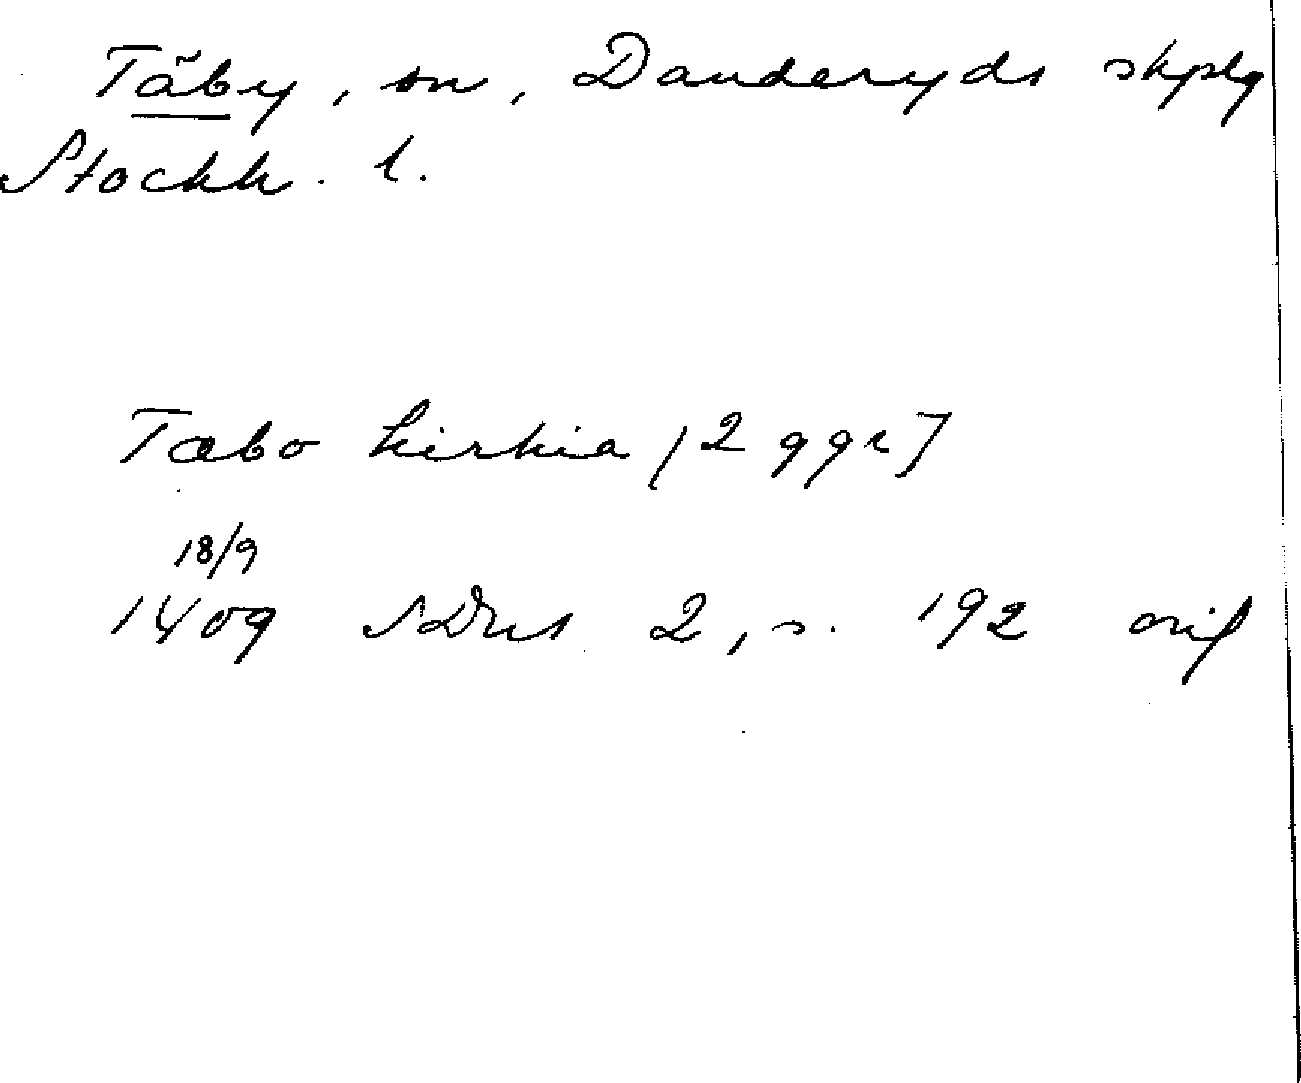 Täby, sn, Danderyds skplg
Stockh. l.
Tæbo kirkia [2 ggr]
18/9
1409 SDns 2, s. 192 orig